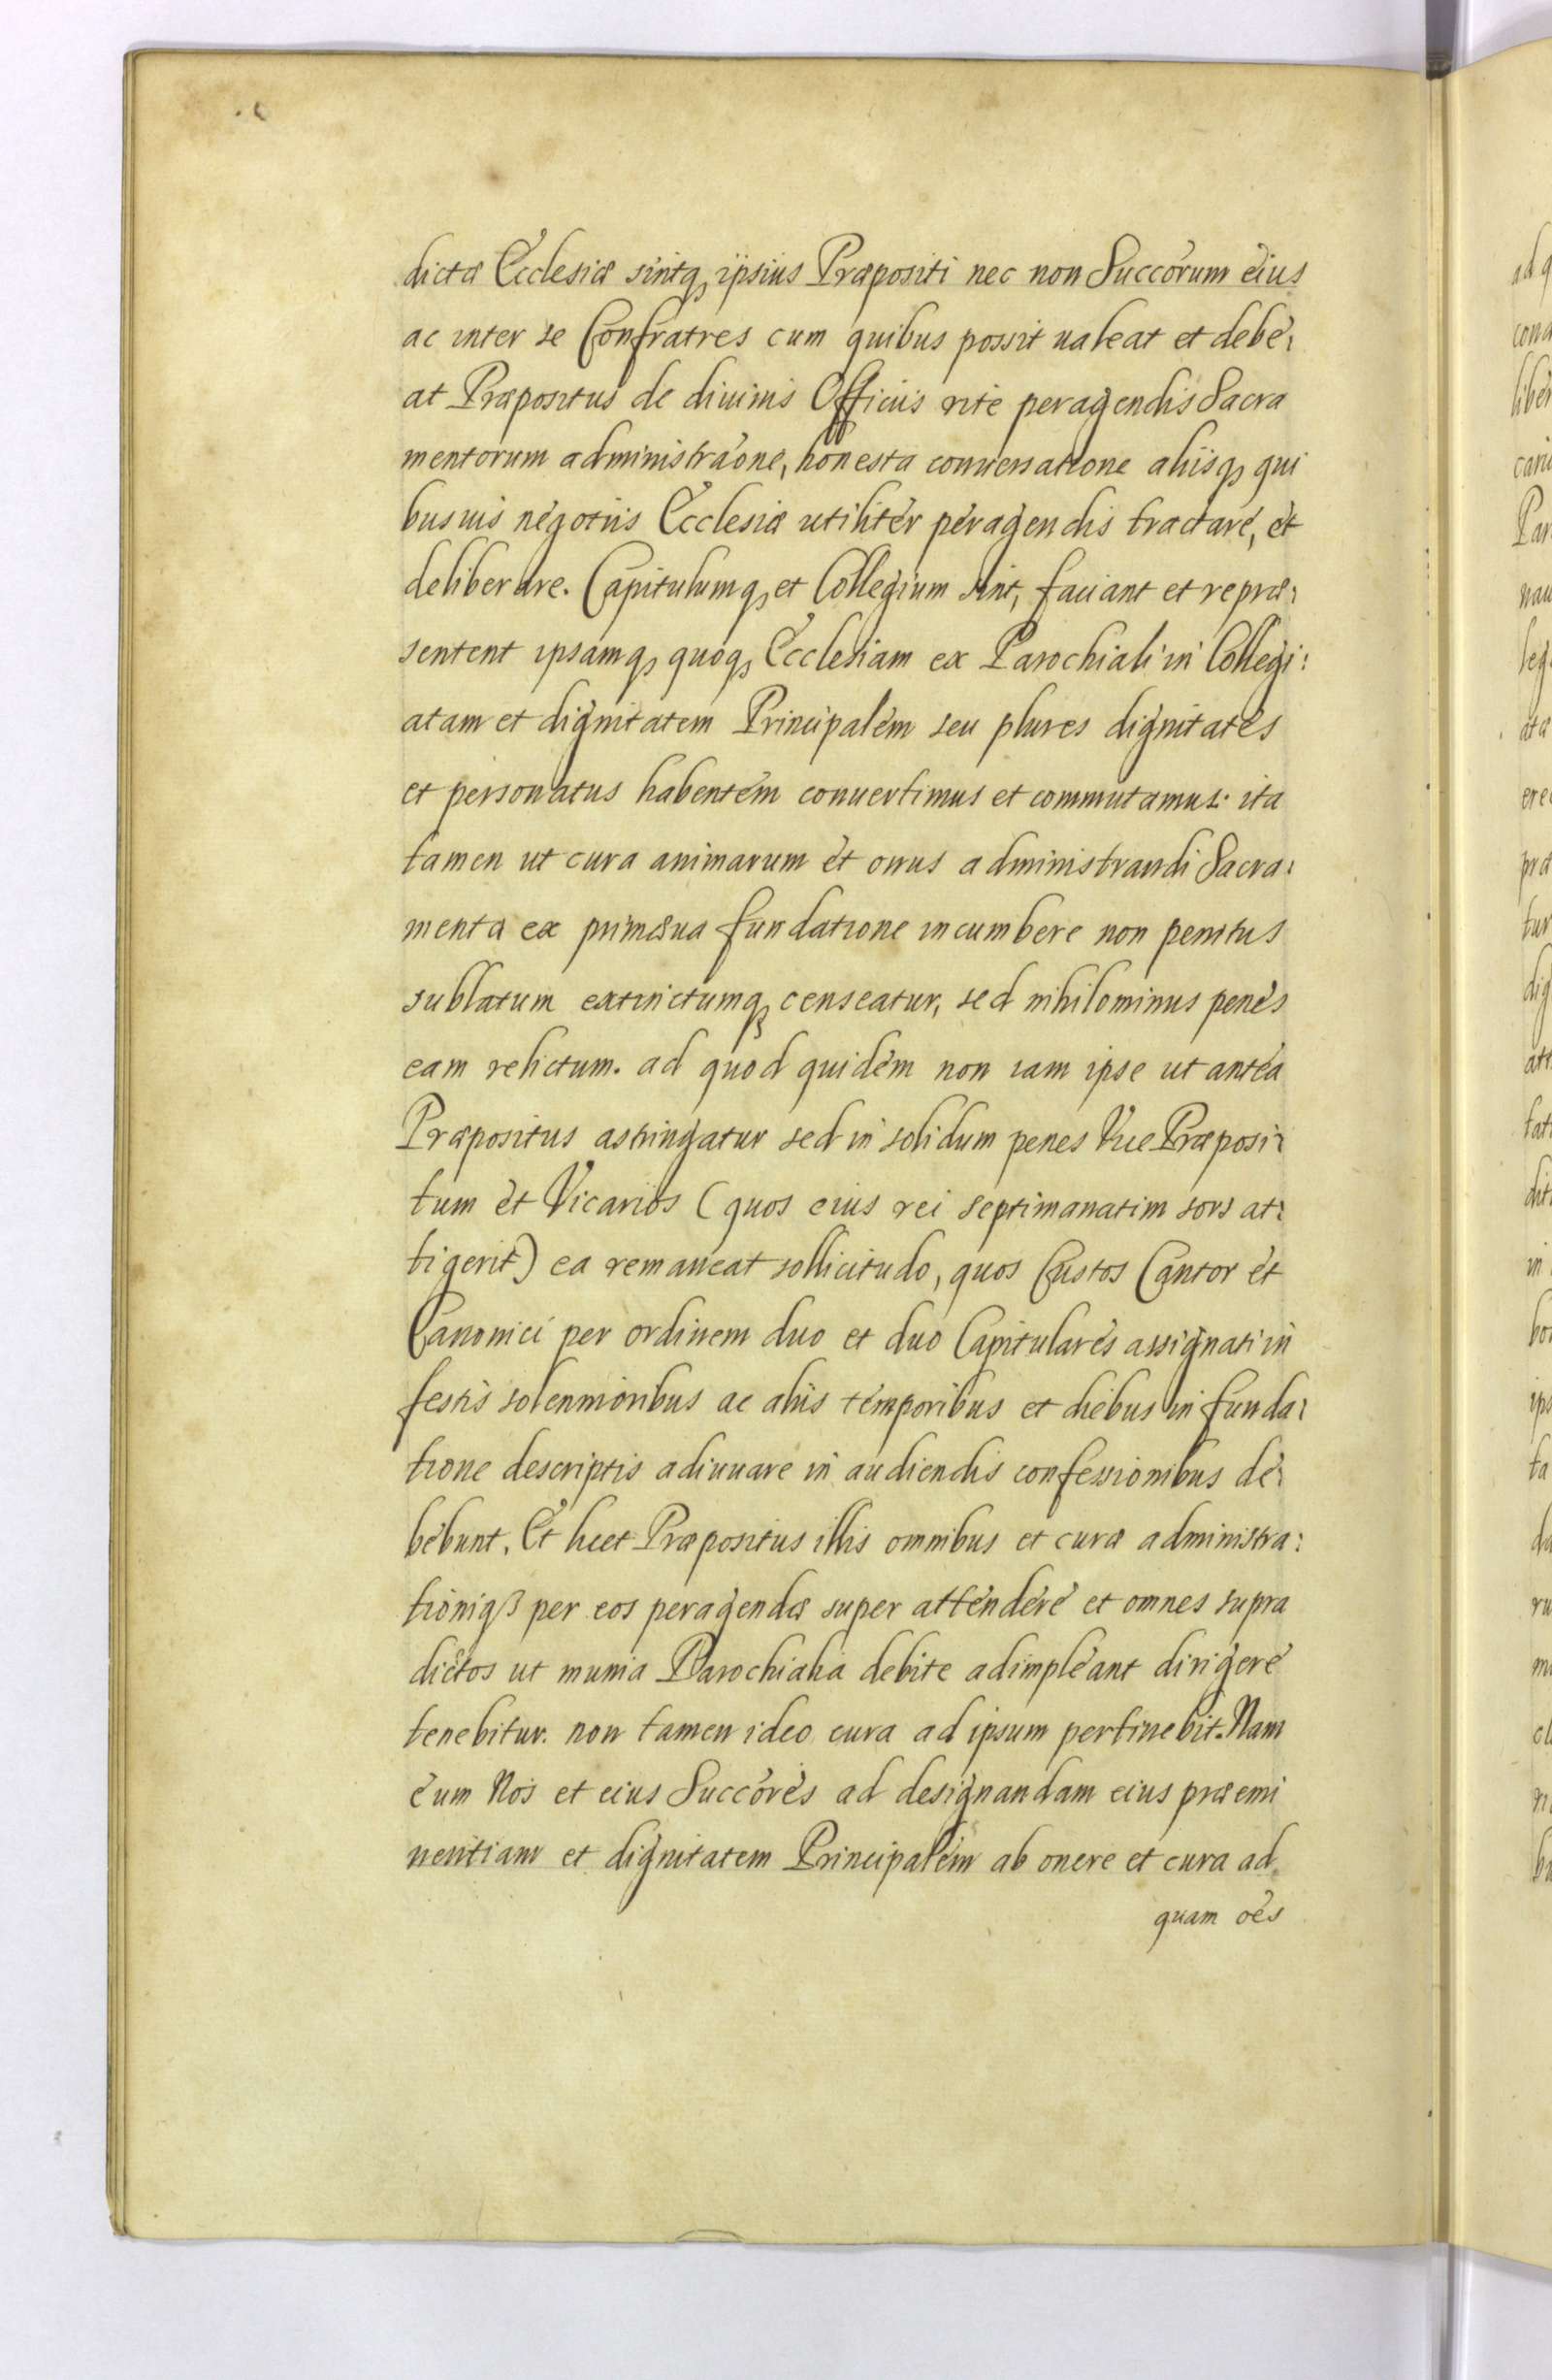 dictæ Ecclesiæ sintq₃ ipsius Præpositi nec non Succorum eius
ac inter se Confratres cum quibus possit ualeat et debe:
at Præpositus de diuinis Officiis rite peragendis Sacra
mentorum administraone, honesta conuersatione aliisq₃ qui
busuis negotiis Ecclesiæ utiliter peragendis tractare, et
deliberare. Capitulumq₃ et Collegium sint, faciant et repræ:
sentent ipsamq₃ quoq₃ Ecclesiam ex Parochiali in Collegi:
atam et dignitatem Principalem seu plures dignitates
et personatus habentem conuertimus et commutamus. ita
tamen ut cura animarum et onus administrandi Sacra:
menta ex primæua fundatione incumbere non penitus
sublatum extinctumq₃ censeatur, sed nihilominus penes
eam relictum. ad quod quidem non iam ipse ut antea
Præpositus astringatur sed in solidum penes Vice Præposi:
tum et Vicarios (quos eius rei septimanatim sors at:
tigerit) ea remaneat sollicitudo, quos Custos Cantor et
Canonici per ordinem duo et duo Capitulares assignati in
festis solennioribus ac aliis temporibus et diebus in funda:
tione descriptis adiuuare in audiendis confessionibus de:
bebunt. Et licet Præpositus illis omnibus et curæ administra:
tioniq₃ per eos peragendæ super attendere et omnes supra
dictos ut munia Parochialia debite adimpleant dirigere
tenebitur. non tamen ideo cura ad ipsum pertinebit. Nam
eum Nos et eius Succores ad designandam eius præemi
nentiam et dignitatem Principalem ab onere et cura ad
quam oes